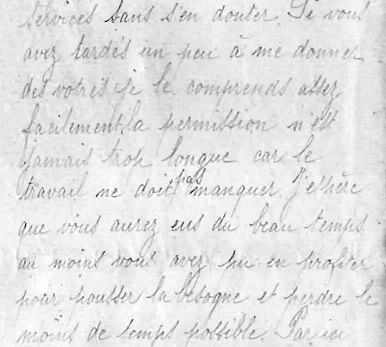 services sans s'en douter. Si vous
avez tardés un peu à me donner
des votres je le comprends assez
facilement la permission n'est
jamais trop longue car le
travail ne doit pas manquer. J'espère
que vous aurez eus du beau temps
au moins vous avez pu en profiter
pour pousser la besogne et perdre le
moins de temps possible. Par ici